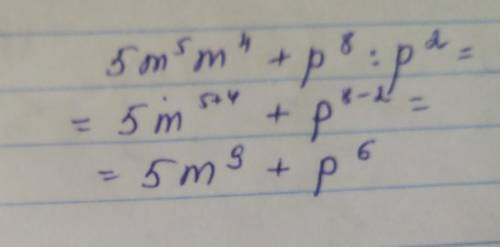 5m⁵m⁴ + p⁸ : p² =
= 5m⁵⁺⁴ + p⁸⁻² =
= 5m⁹ + p⁶